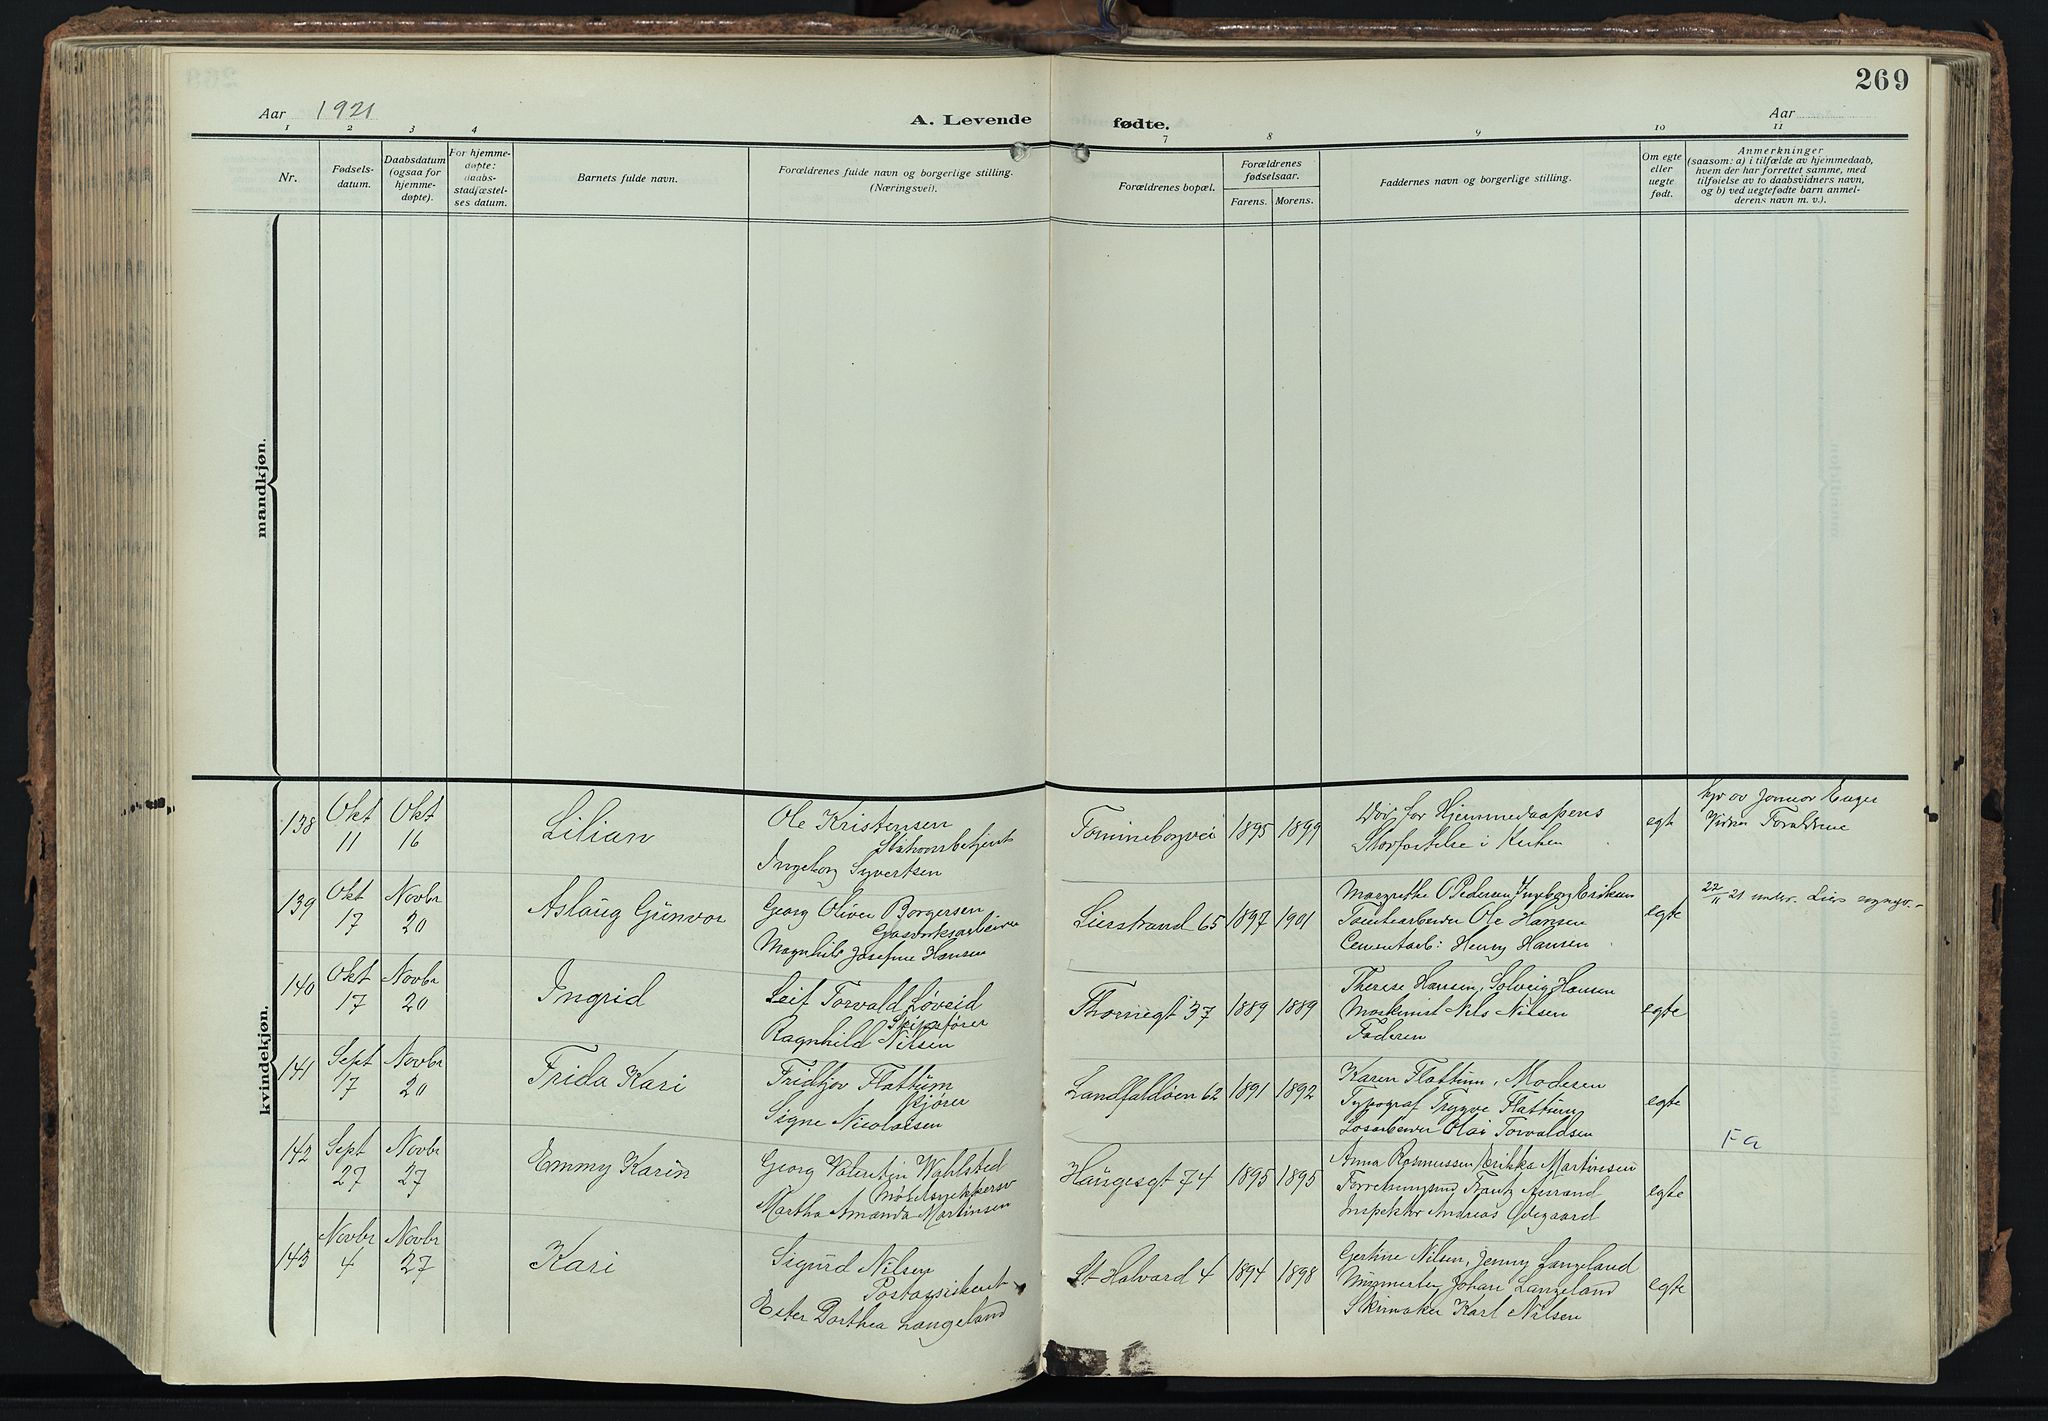 269
Aar 1921
A. Levende fødte.
Aar
1 2 3 4 7 8 9 10 11
Nr.
Fødsels-
datum.
Daabsdatum
(ogsaa for
hjemme-
døpte).
For hjemme-
døpte:
daabs-
stadfæstel-
ses datum.
Barnets fulde navn.
Forældrenes fulde navn og borgerlige stilling.
(Næringsvei).
Forældrenes bopæl.
Forældrenes
fødselsaar.
Farens. Morens.
Faddernes navn og borgerlige stilling.
Om egte
eller
uegte
født.
Anmerkninger
(saasom: a) i tilfælde av hjemmedaab,
hvem der har forrettet samme, med
tilføielse av to daabsvidners navn,
og b) ved uegtefødte barn anmel-
derens navn m. v.).
mandkjøn.
kvindekjøn.
138 Okt 11 Okt 16 Lilian
Ole Kristensen
Ingeborg Syvertsen
1895 1899
egte
139 Okt 17 Novbr 20 Aslaug Gunvor
Georg Oliver Borgersen
Gasverksarbeider
Magnhild Josefine Hansen
Lierstrand 65 1897 1901
Margrethe O Pedersen, Ingeborg Eriksen
Ole Hansen
Cementarb: Henry Hansen
egte
22/11 21 under. Liers sognepr.
140 Okt 17 Novbr 20 Ingrid
Leif Torvald Løveid
Skipsfører
Ragnhild Nilsen
Thornegt 37 1889 1889
Therese Hansen, Solveig Hansen
Maskinist Nils Nilsen
Faderen
egte
141 Sept 17 Novbr 20 Frida Kari
Fridtjov Flattum
kjører
Signe Nicolaisen
Landfaldøen 62 1891 1892
Karen Flattum, Moderen
Typograf Trygve Flattum
Olai Torvaldsen
egte
142 Sept 27 Novbr 27 Emmy Karin
Georg Valentin Wahlsted
Møbelsnekkersv
Martha Amanda Martinsen
Haugesgt 74 1895 1895
Anna Rasmussen, Erikka Martinsen
Frantz Aurand
Inspektør Andreas Ødegaard
egte
Fa
143 Novbr 4 Novbr 27 Kari
Sigurd Nilsen
Postassistent
Ester Dorthea Langeland
St Halvard 4 1894 1898
Gertine Nilsen, Jenny Langeland
Murmester Johan Langeland
Skinmaker Karl Nilsen
egte